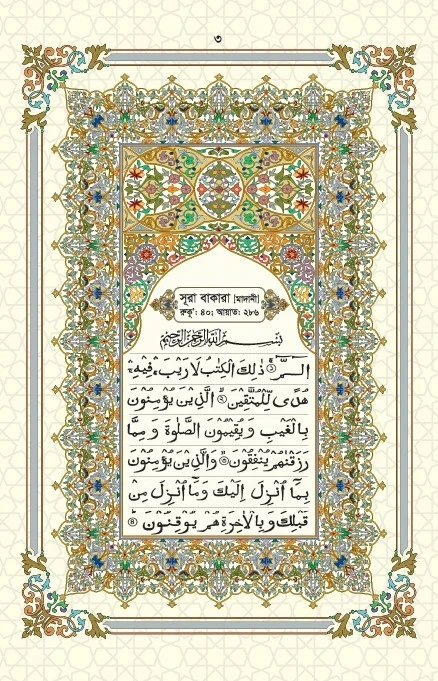 ৩
সূরা বাকারা [মাদানী]
রুকূ': ৪০; আয়াত: ২৮৬
بِسْمِ اللهِ الرَّحْمٰنِ الرَّحِيْمِ
الٓـمّٓ ۚ﴿١﴾ ذٰلِكَ الْكِتٰبُ لَا رَيْبَ ۛ فِيْهِ ۛ
هُدًى لِّلْمُتَّقِيْنَ ﴿٢﴾ الَّذِيْنَ يُؤْمِنُوْنَ
بِالْغَيْبِ وَ يُقِيْمُوْنَ الصَّلٰوةَ وَ مِمَّا
رَزَقْنٰهُمْ يُنْفِقُوْنَ ﴿٣﴾ وَالَّذِيْنَ يُؤْمِنُوْنَ
بِمَآ اُنْزِلَ اِلَيْكَ وَمَآ اُنْزِلَ مِنْ
قَبْلِكَ وَ بِالْاٰخِرَةِ هُمْ يُوْقِنُوْنَ ﴿٤﴾